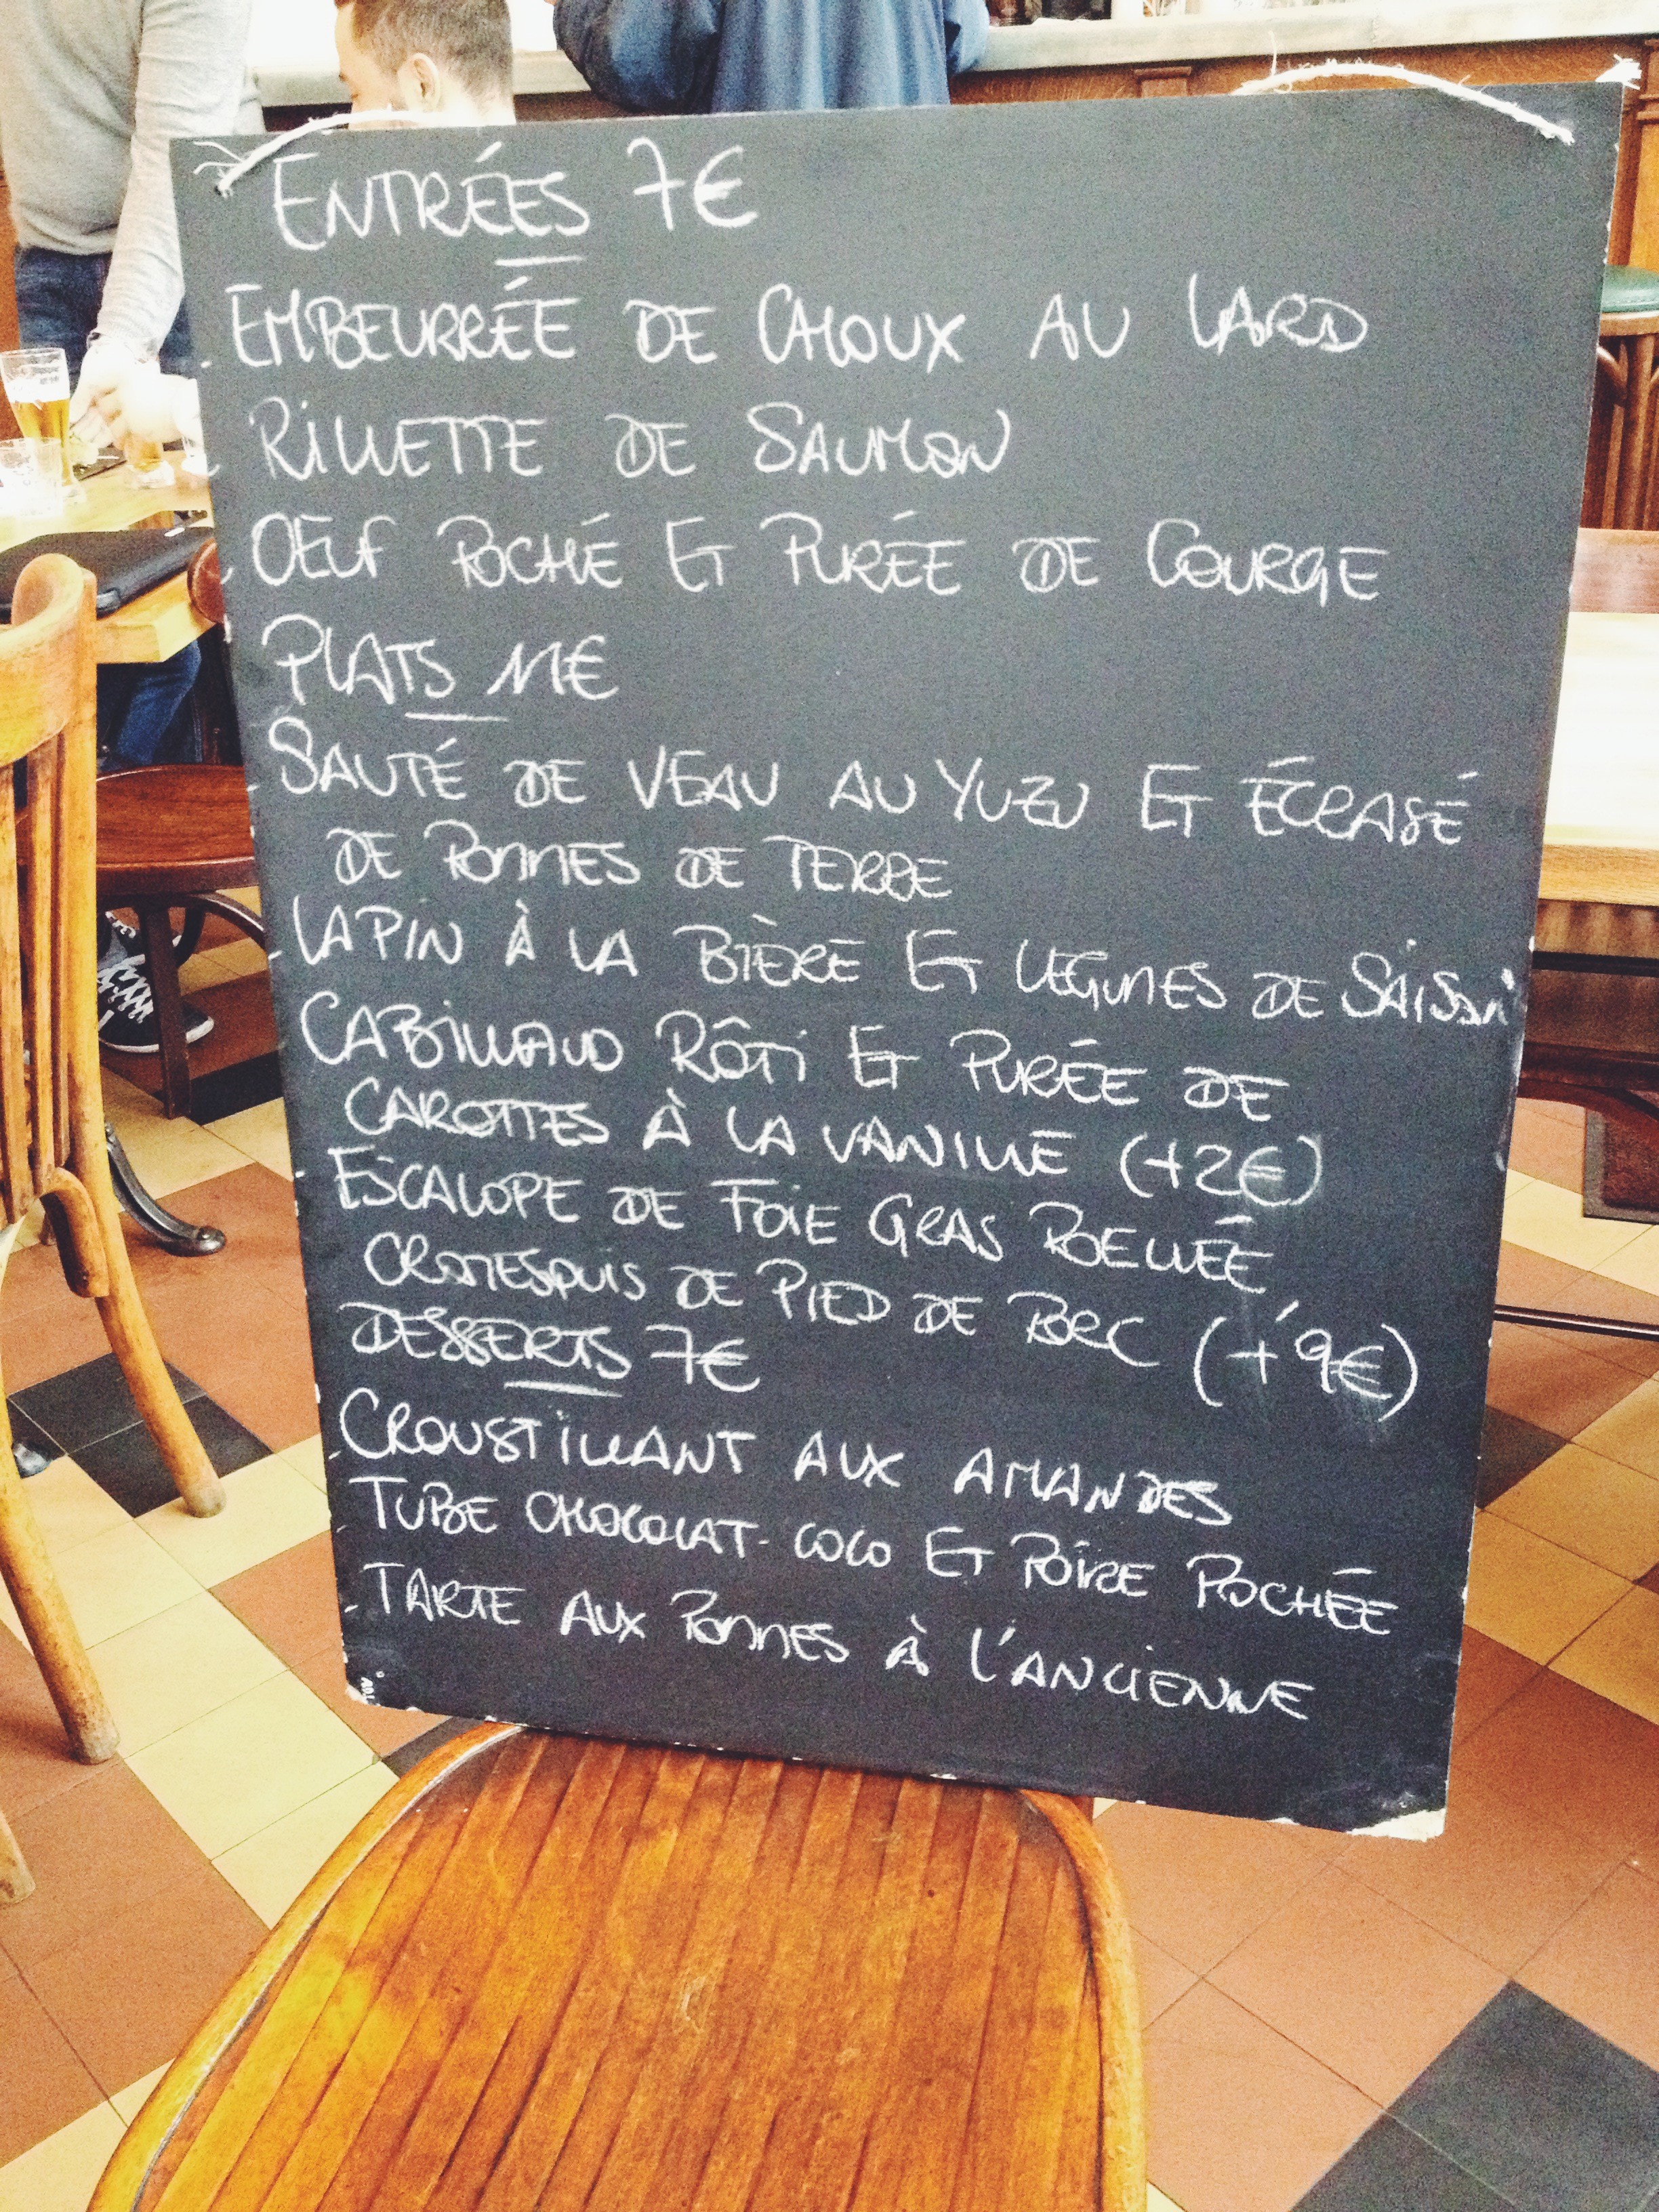 ENTRÉES 7€
- EMBEURRÉE DE CHOUX AU LARD
- RILLETTE DE SAUMON
- OEUF POCHÉ ET PURÉE DE COURGE
PLATS 11€
- SAUTÉ DE VEAU AU YUZU ET ÉCRASÉ
DE POMMES DE TERRE
- LAPIN À LA BIÈRE ET LEGUMES DE SAISON
CABILLAUD RÔTI ET PURÉE DE
CAROTTES À LA VANILLE (+2€)
- ESCALOPE DE FOIE GRAS POELLÉE
CROMESQUIS DE PIED DE PORC (+9€)
DESSERTS 7€
- CROUSTILLANT AUX AMANDES
- TUBE CHOCOLAT-COCO ET POIRE POCHÉE
- TARTE AUX POMMES À L'ANCIENNE